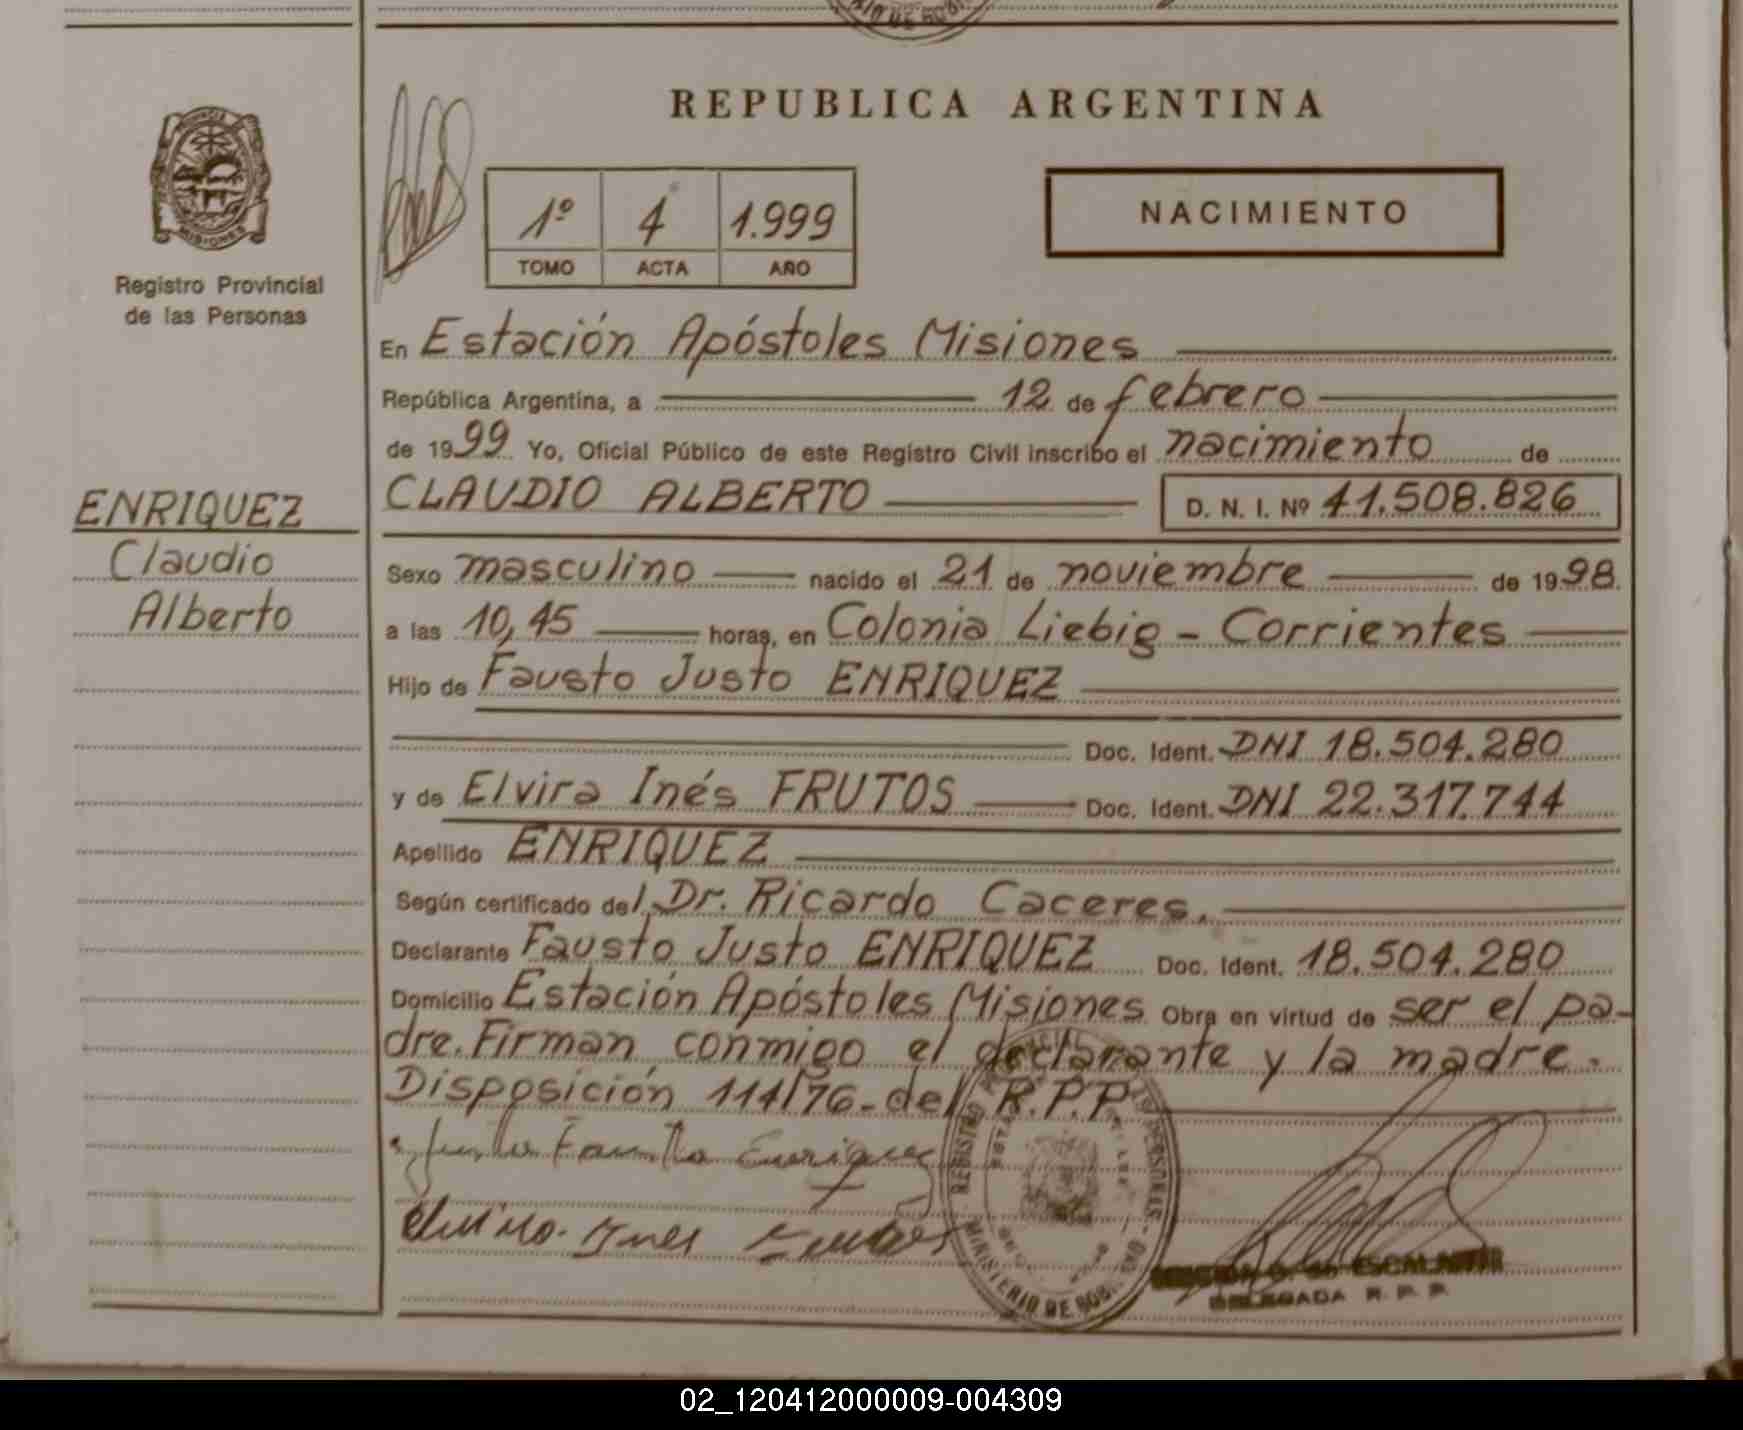 REPUBLICA ARGENTINA
PROVINCIA
MISIONES
Registro Provincial
de las Personas
1º 4 1.999
TOMO ACTA AÑO
NACIMIENTO
En Estación Apóstoles Misiones
República Argentina, a 12 de febrero
de 1999 Yo, Oficial Público de este Registro Civil inscribo el nacimiento de
CLAUDIO ALBERTO D. N. I. Nº 41.508.826
ENRIQUEZ
Claudio
Alberto
Sexo masculino nacido el 21 de noviembre de 1998.
a las 10,45 horas, en Colonia Liebig - Corrientes
Hijo de Fausto Justo ENRIQUEZ
Doc. Ident. DNI 18.504.280
y de Elvira Inés FRUTOS Doc. Ident. DNI 22.317.744
Apellido ENRIQUEZ
Según certificado del Dr. Ricardo Caceres.
Declarante Fausto Justo ENRIQUEZ Doc. Ident. 18.504.280
Domicilio Estación Apóstoles Misiones Obra en virtud de ser el pa-
dre. Firman conmigo el declarante y la madre.
Disposición 114/76 - del R.P.P.
Justo Fausto Enriquez
Elvira Ines
REGISTRO PERSONAS
MINISTERIO DE GOB.
ESCALANTE
DELEGADA R. P. P.
02_120412000009-004309